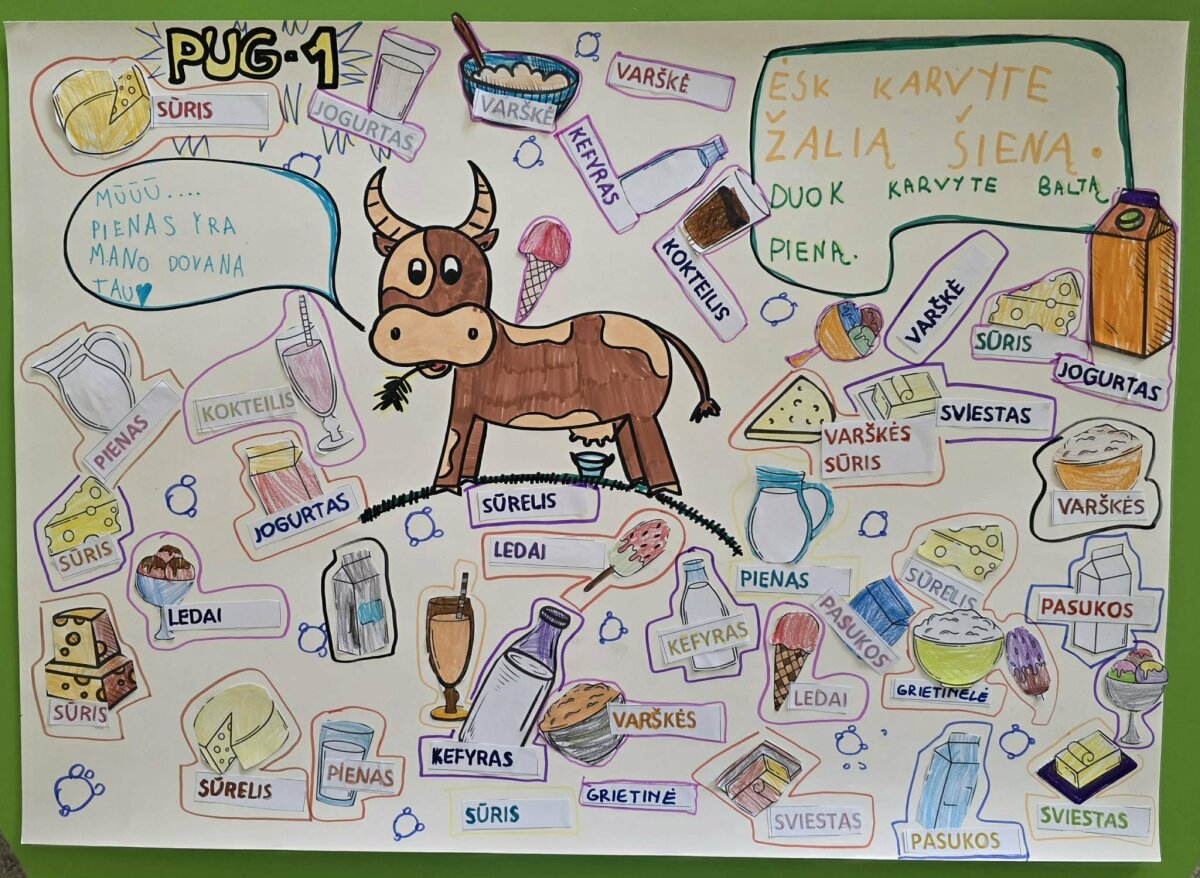 PUG-1
SŪRIS
JOGURTAS
VARŠKĖ
VARŠKĖ
KEFYRAS
KOKTEILIS
ĖSK KARVYTE
ŽALIĄ ŠIENĄ.
DUOK KARVYTE BALTĄ
PIENĄ.
MŪŪŪ....
PIENAS YRA
MANO DOVANA
TAU
VARŠKĖ
SŪRIS
JOGURTAS
PIENAS
KOKTEILIS
SVIESTAS
VARŠKĖS
SŪRIS
VARŠKĖS
JOGURTAS
SŪRELIS
SŪRIS
LEDAI
PIENAS
SŪRELIS
LEDAI
KEFYRAS
PASUKOS
PASUKOS
SŪRIS
LEDAI
GRIETINĖLĖ
VARŠKĖS
KEFYRAS
SŪRELIS
PIENAS
SŪRIS
GRIETINĖ
SVIESTAS
PASUKOS
SVIESTAS